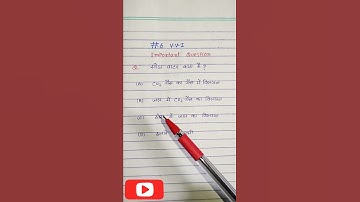 #6 V.V.I
Important Question
Q. सोडा वाटर क्या है ?
(A) CO₂ गैस का गैस में विलयन
(B) जल में CO₂ गैस का विलयन
(C) में जल का विलयन
(D) इनमें